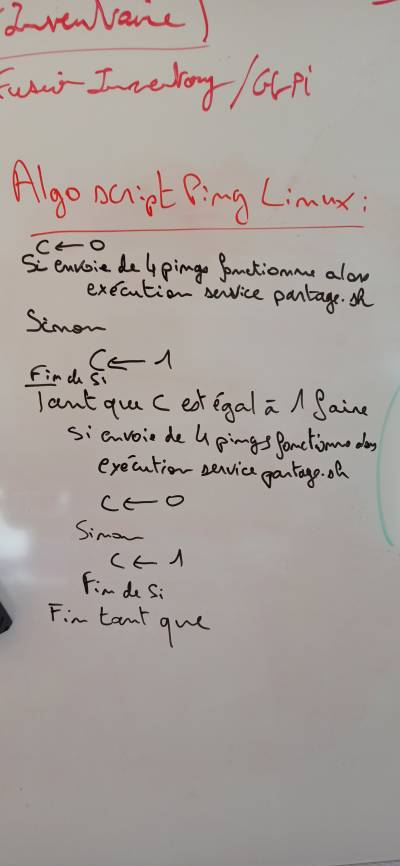 (Inventaire)
Fusion Inventory/GLPi
Algo script Ping Linux :
C ← 0
Si envoie de 4 pings fonctionne alors
exécution service partage.sh
Sinon
C ← 1
Fin de Si
Tant que C est égal à 1 faire
Si envoie de 4 pings fonctionne alors
exécution service partage.sh
C ← 0
Sinon
C ← 1
Fin de Si
Fin tant que